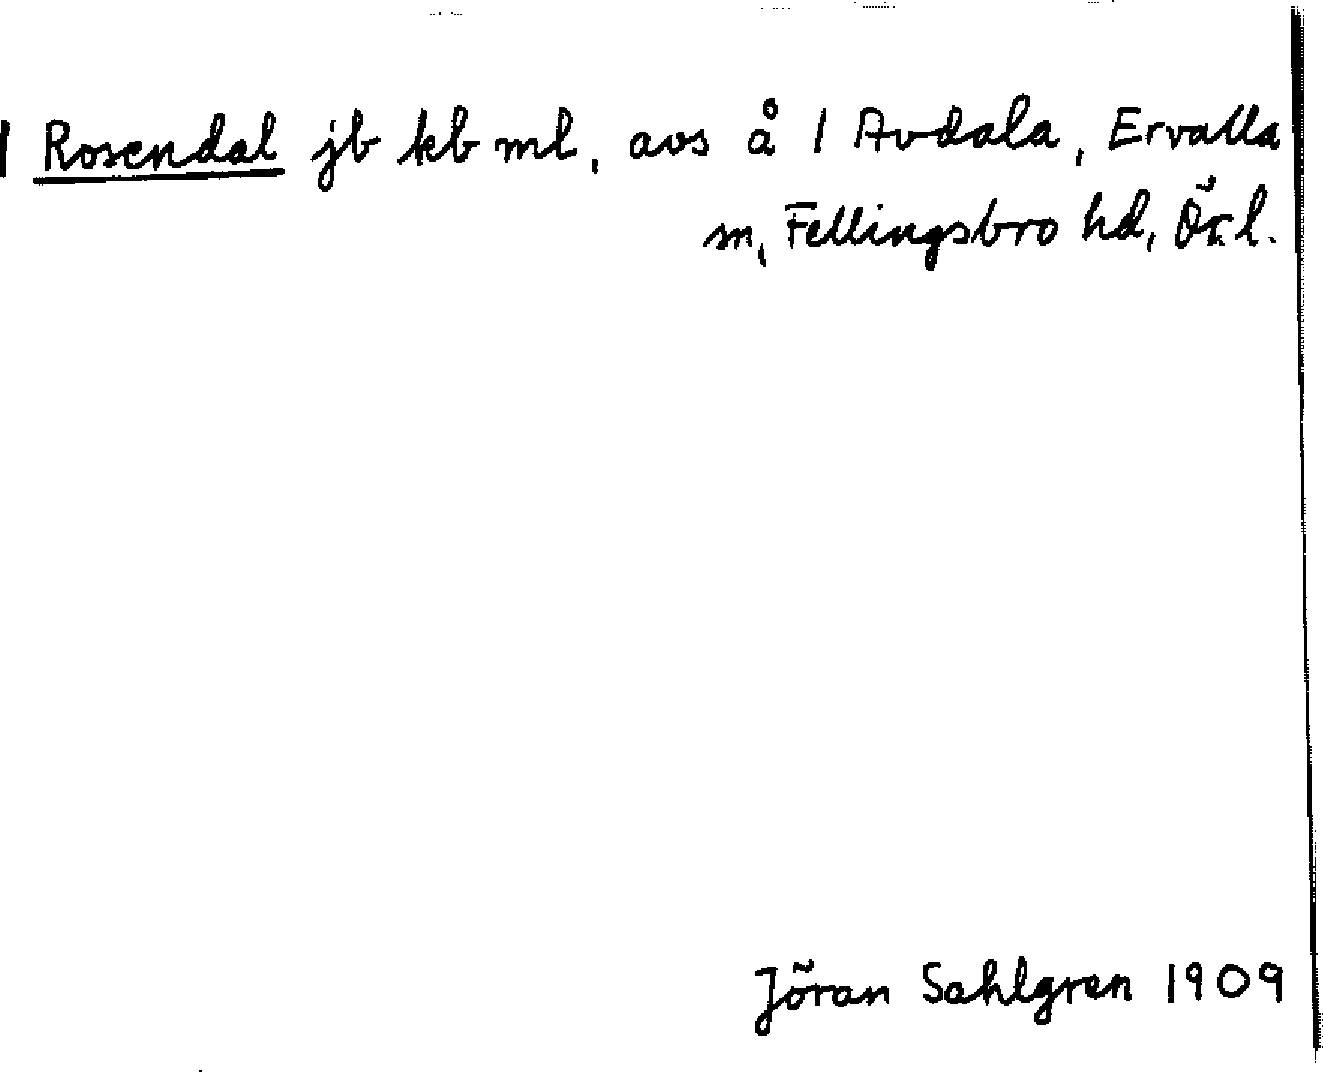 1 Rosendal jb kb ml, avs å 1 Avdala, Ervalla
sn, Fellingsbro hd, Ör. l.
Jöran Sahlgren 1909